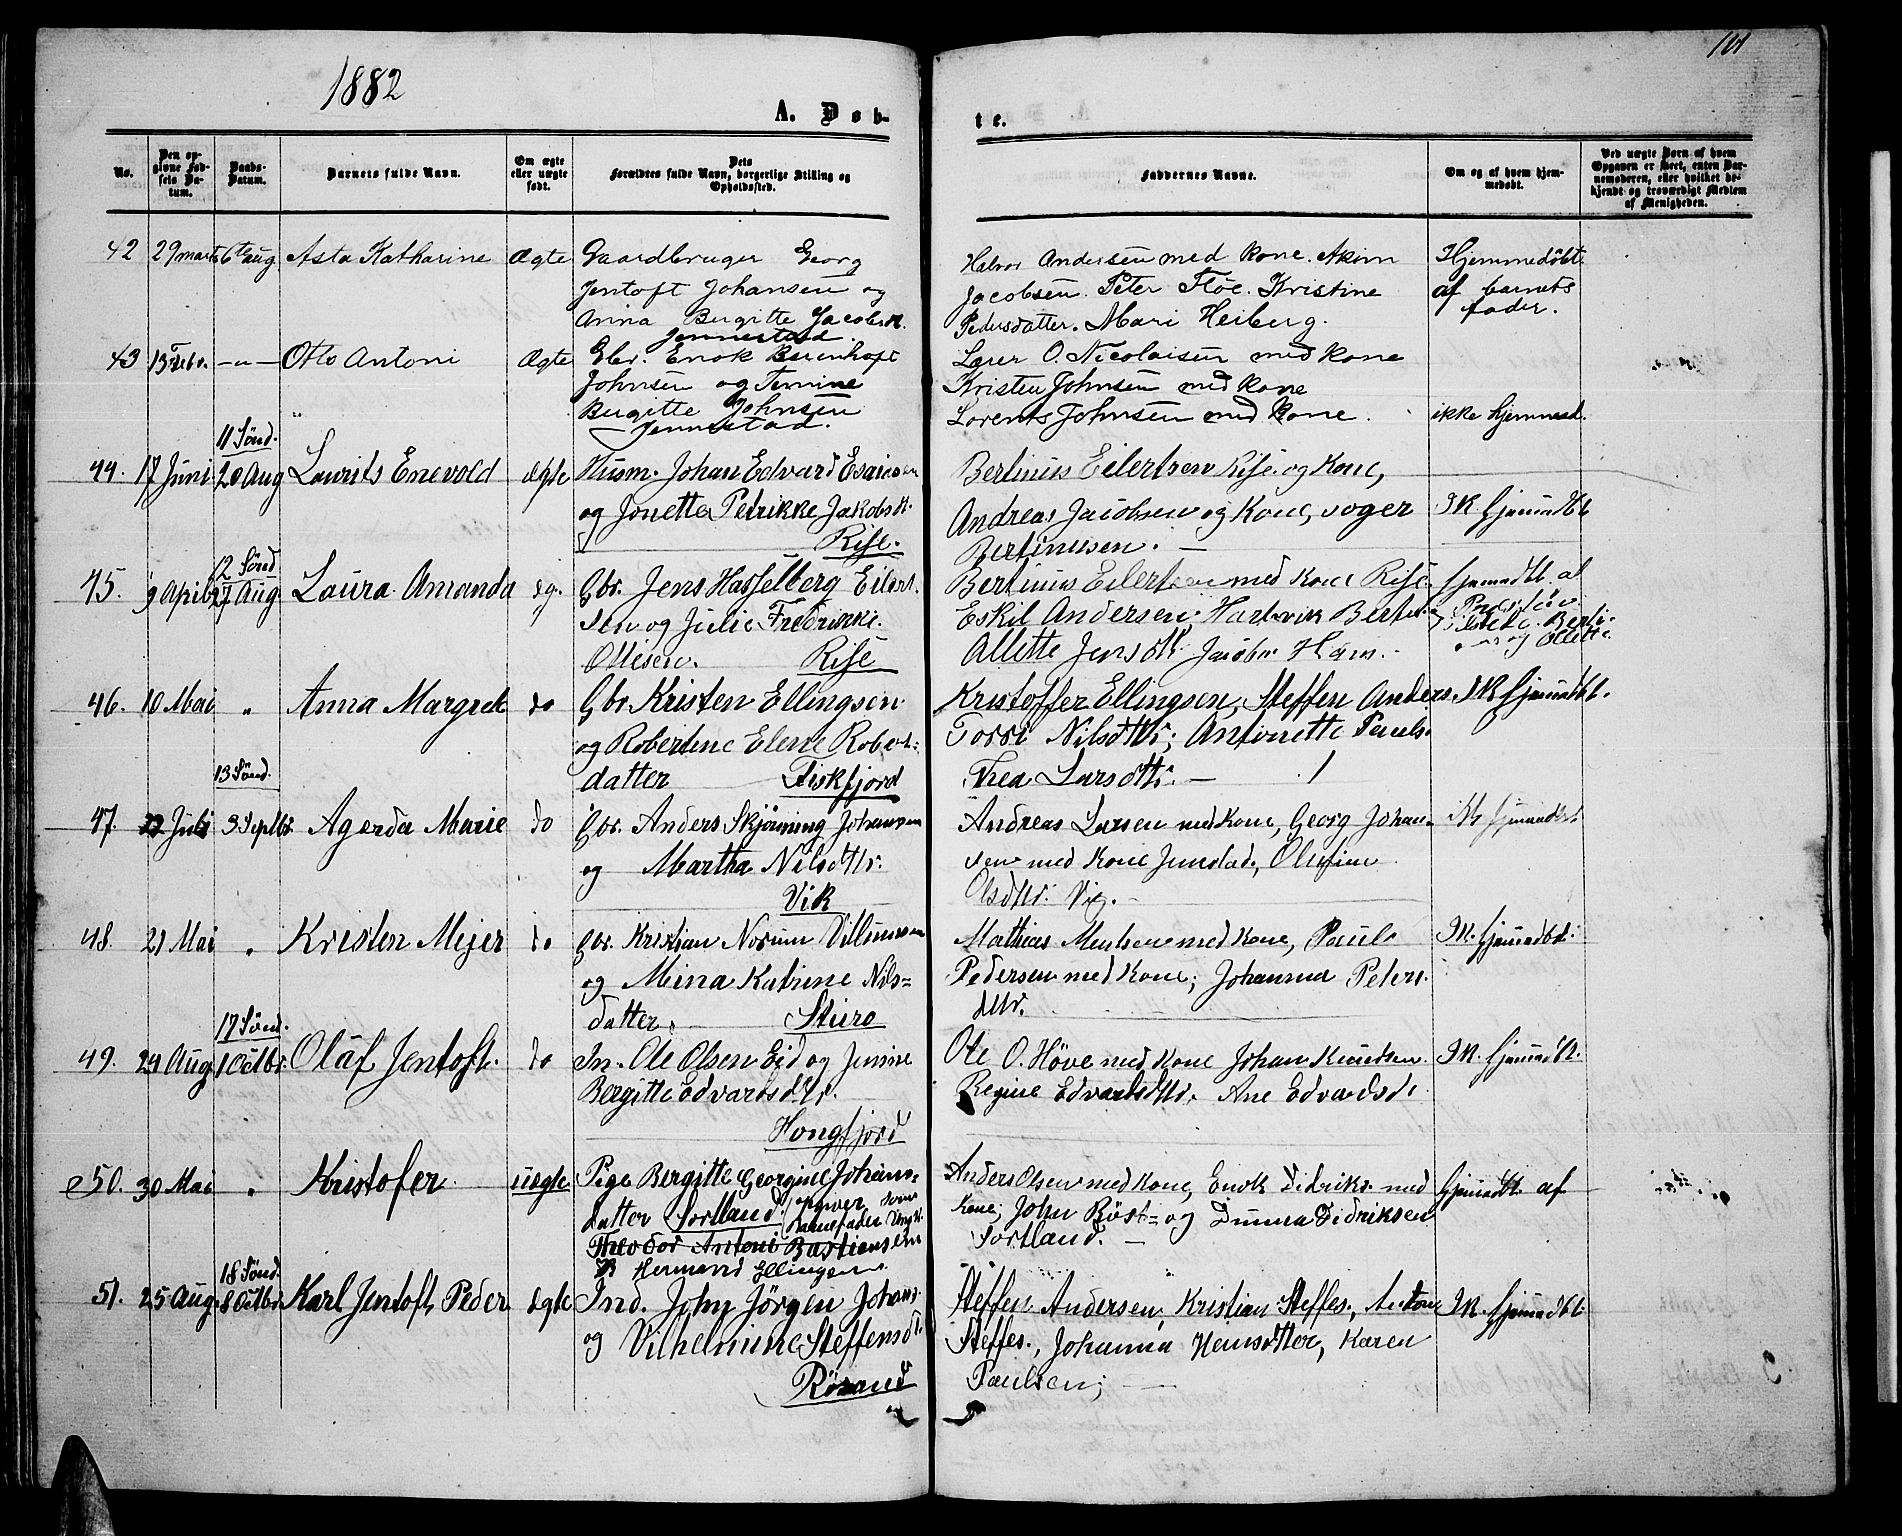 1882
101
A. Døb-
te.
No.
Den op-
givne Fød-
sels Da-
tum.
Daabs-
Datum.
Barnets fulde Navn.
Om ægte
eller uægte
født.
Dets
Forældres fulde Navn, borgerlige Stilling og
Opholdssted.
Faddernes Navne.
Om og af hvem hjem-
medøbt.
Ved uægte Børn af hvem
Opgaven er skeet, enten Bar-
nemoderen, eller hvilket be-
kjendt og troværdigt Medlem
af Menigheden.
42 29 marts 6te Aug. Asta Katharine Ægte Gaardbruger Georg
Jentoft Johansen og
Anna Birgitte Jacobsd.
Jennestad.
Halvor Andersen med kone. Akim
Jacobsen. Peter Floe. Kristine
Pedersdatter. Mari Heiberg.
Hjemmedøbt
af barnets
fader.
43 13 Febr. -"- Otto Antoni Ægte Gbr. Enok Berenhoft
Johnsen og Temine
Birgitte Johnsen
Jennestad.
Lærer O. Nicolaisen med kone
Kristen Johnsen med kone
Lorents Johnsen med kone.
ikke hjemmed.
11 Sønd.
44. 17 Juni 20 Aug Laurits Enevold ægte Husm. Johan Edvard Esaiassen
og Jonette Petrikke Jakobsdt.
Rise.
Bertinus Eilertsen Rise og Kone,
Andreas Jacobsen og Kone, Roger
Bertinusen. —
Ik. hjemmedbt.
12 Sønd
45. 9 April 27 Aug Laura Amanda æg. Gbr. Jens Hasselberg Eilert-
sen og Julie Fredrikke
Ollesen. Rise
Bertinus Eilertsen med Kone Rise
Eskil Andersen, Hartvik Bertin
Allette Jensdtr. Jacober Hans.
hjemmedbt. af
og Ollette
46. 10 Mai " Anna Margrete do Gbr. Kristen Ellingsen
og Robertine Elene Robert-
datter Fiskfjord
Kristoffer Ellingsen, Steffen Anders.
Torri Nilsdttr; Antonette Pauls.
Thea Larsdttr. —
Ik hjemmedbt.
13 Sønd.
47. Juli 3 Septbr Agerda Marie do Gbr. Anders Skjønning Johansen
og Martha Nilsdttr.
Vik
Andreas Larsen med Kone, Georg Johan-
sen med Kone Jennstad, Olufine
Olsdttr. Vig. -
Ik hjemmedbt.
48. 21 Mai " Kristen Mejer do Gbr. Kristian Norum Villumsen
og Mina Katrine Nils=
datter. Stiro
Mathias Madsen med Kone, Paul
Pedersen med Kone; Johanna Peters.
dttr.
Ik. hjemmedbt.
17 Sønd.
49. 24 Aug 1 Octbr. Olaf Jentoft. do In. Ole Olsen Eid og Jenine
Bergitte Edvardsdttr.
Hongfjord
Ole O. Høve med Kone Johan Knudsen
Regine Edvardsdttr. Ane Edvardsdt.
Ik. hjemmedbt.
50. 30 Mai " Kristofer uægte Pige Bergitte Georgine Johans-
datter Sortland. opgiver som
Barnefader Ungk.
Theodor Antoni Bastiansen
Hermand Ellingsen
Anders Olsen med Kone, Enok Didriks. med
Kone; John Røst= og Dunna Didriksen
Sortland. —
hjemmedbt af
18 Sønd.
51. 25 Aug. 8 Octbr. Karl Jentoft Peder ægte Ind. John Jørgen Johans.
og Vilhelmine Steffensdt.
Rösand
Steffen Andersen, Kristian Steffes., Anton
Steffes., Johanna Hemsdtter, Karen
Paulsen; —
Ik. hjemmedbt.